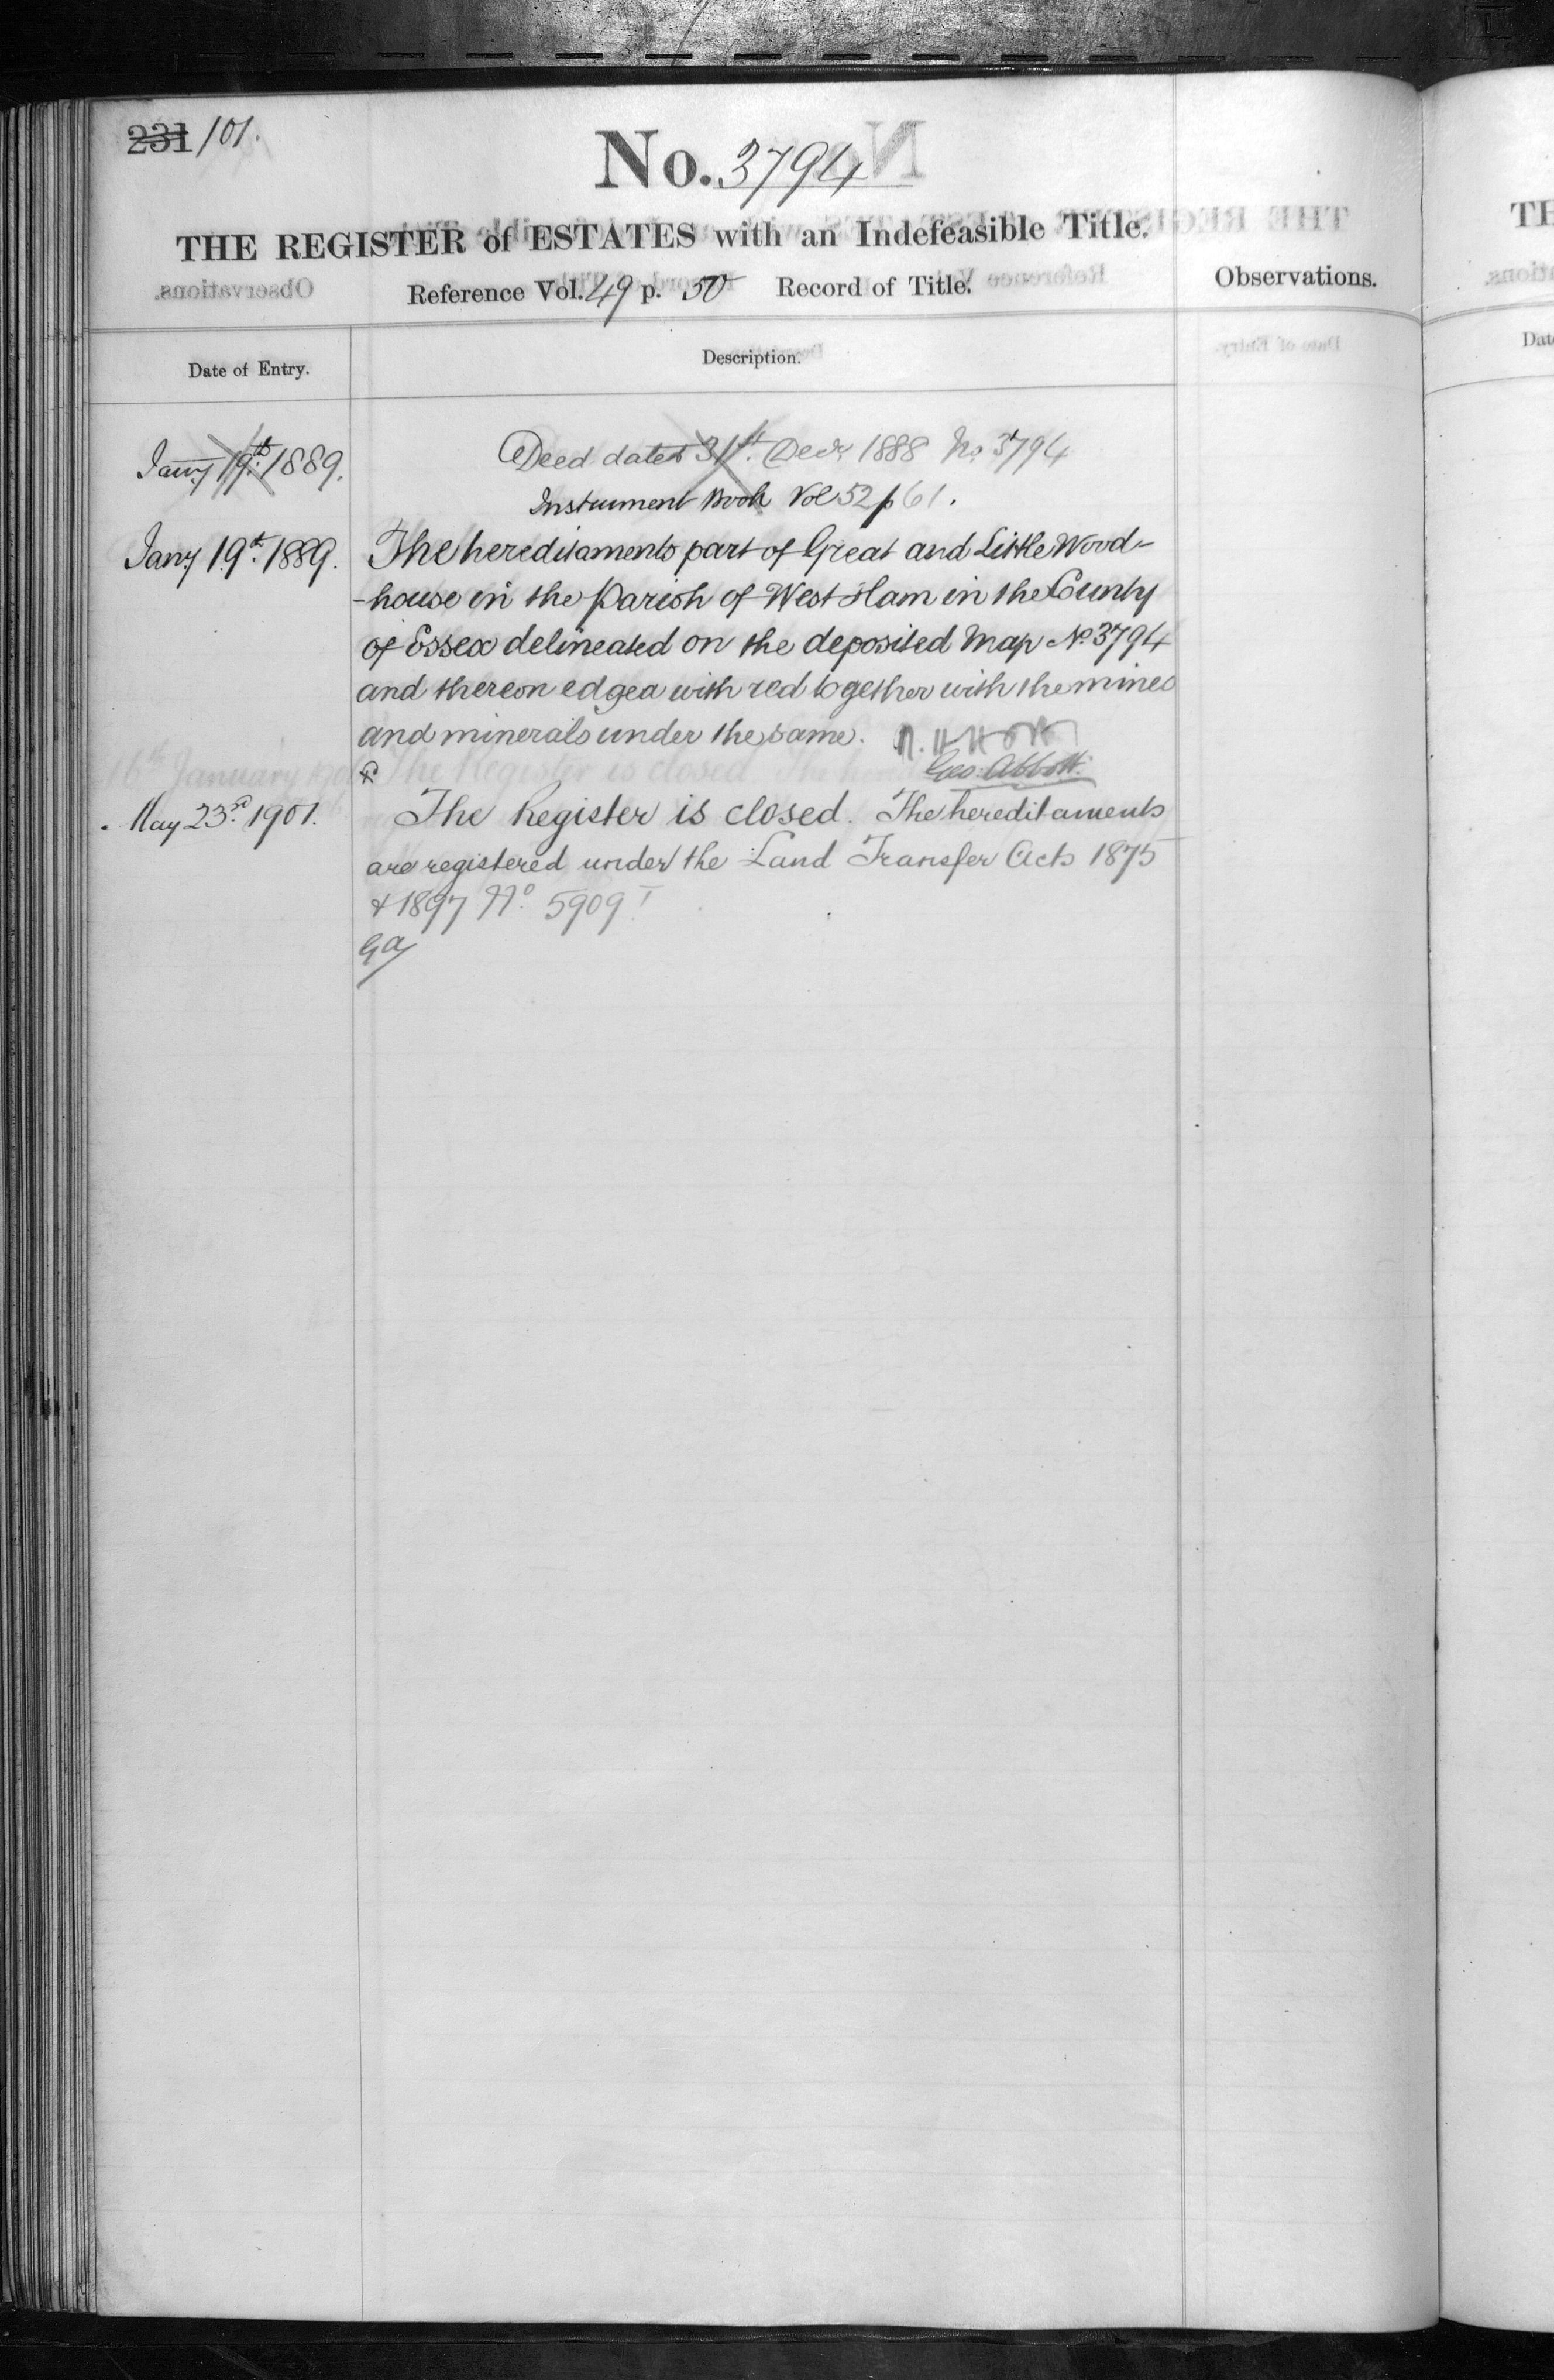 231 101.
No. 3794
THE REGISTER of ESTATES with an Indefeasible Title.
Reference Vol. 49 p. 50 Record of Title.
Observations.
Date of Entry.
Description.
Jany 19th 1889.
Deed dated 31st Decr 1888 No 3794
Instrument Book Vol 52 p 61.
Jany 19th 1889.
The hereditaments part of Great and Little Wood-
-house in the Parish of West Ham in the County
of Essex delineated on the deposited Map No. 3794
and thereon edged with red together with the mines
and minerals under the same.
Geo. Abbott.
16th January
The Register is closed. The
May 23rd 1901.
The Register is closed. The hereditaments
are registered under the Land Transfer Acts 1875
& 1897 No 5909 I
GA